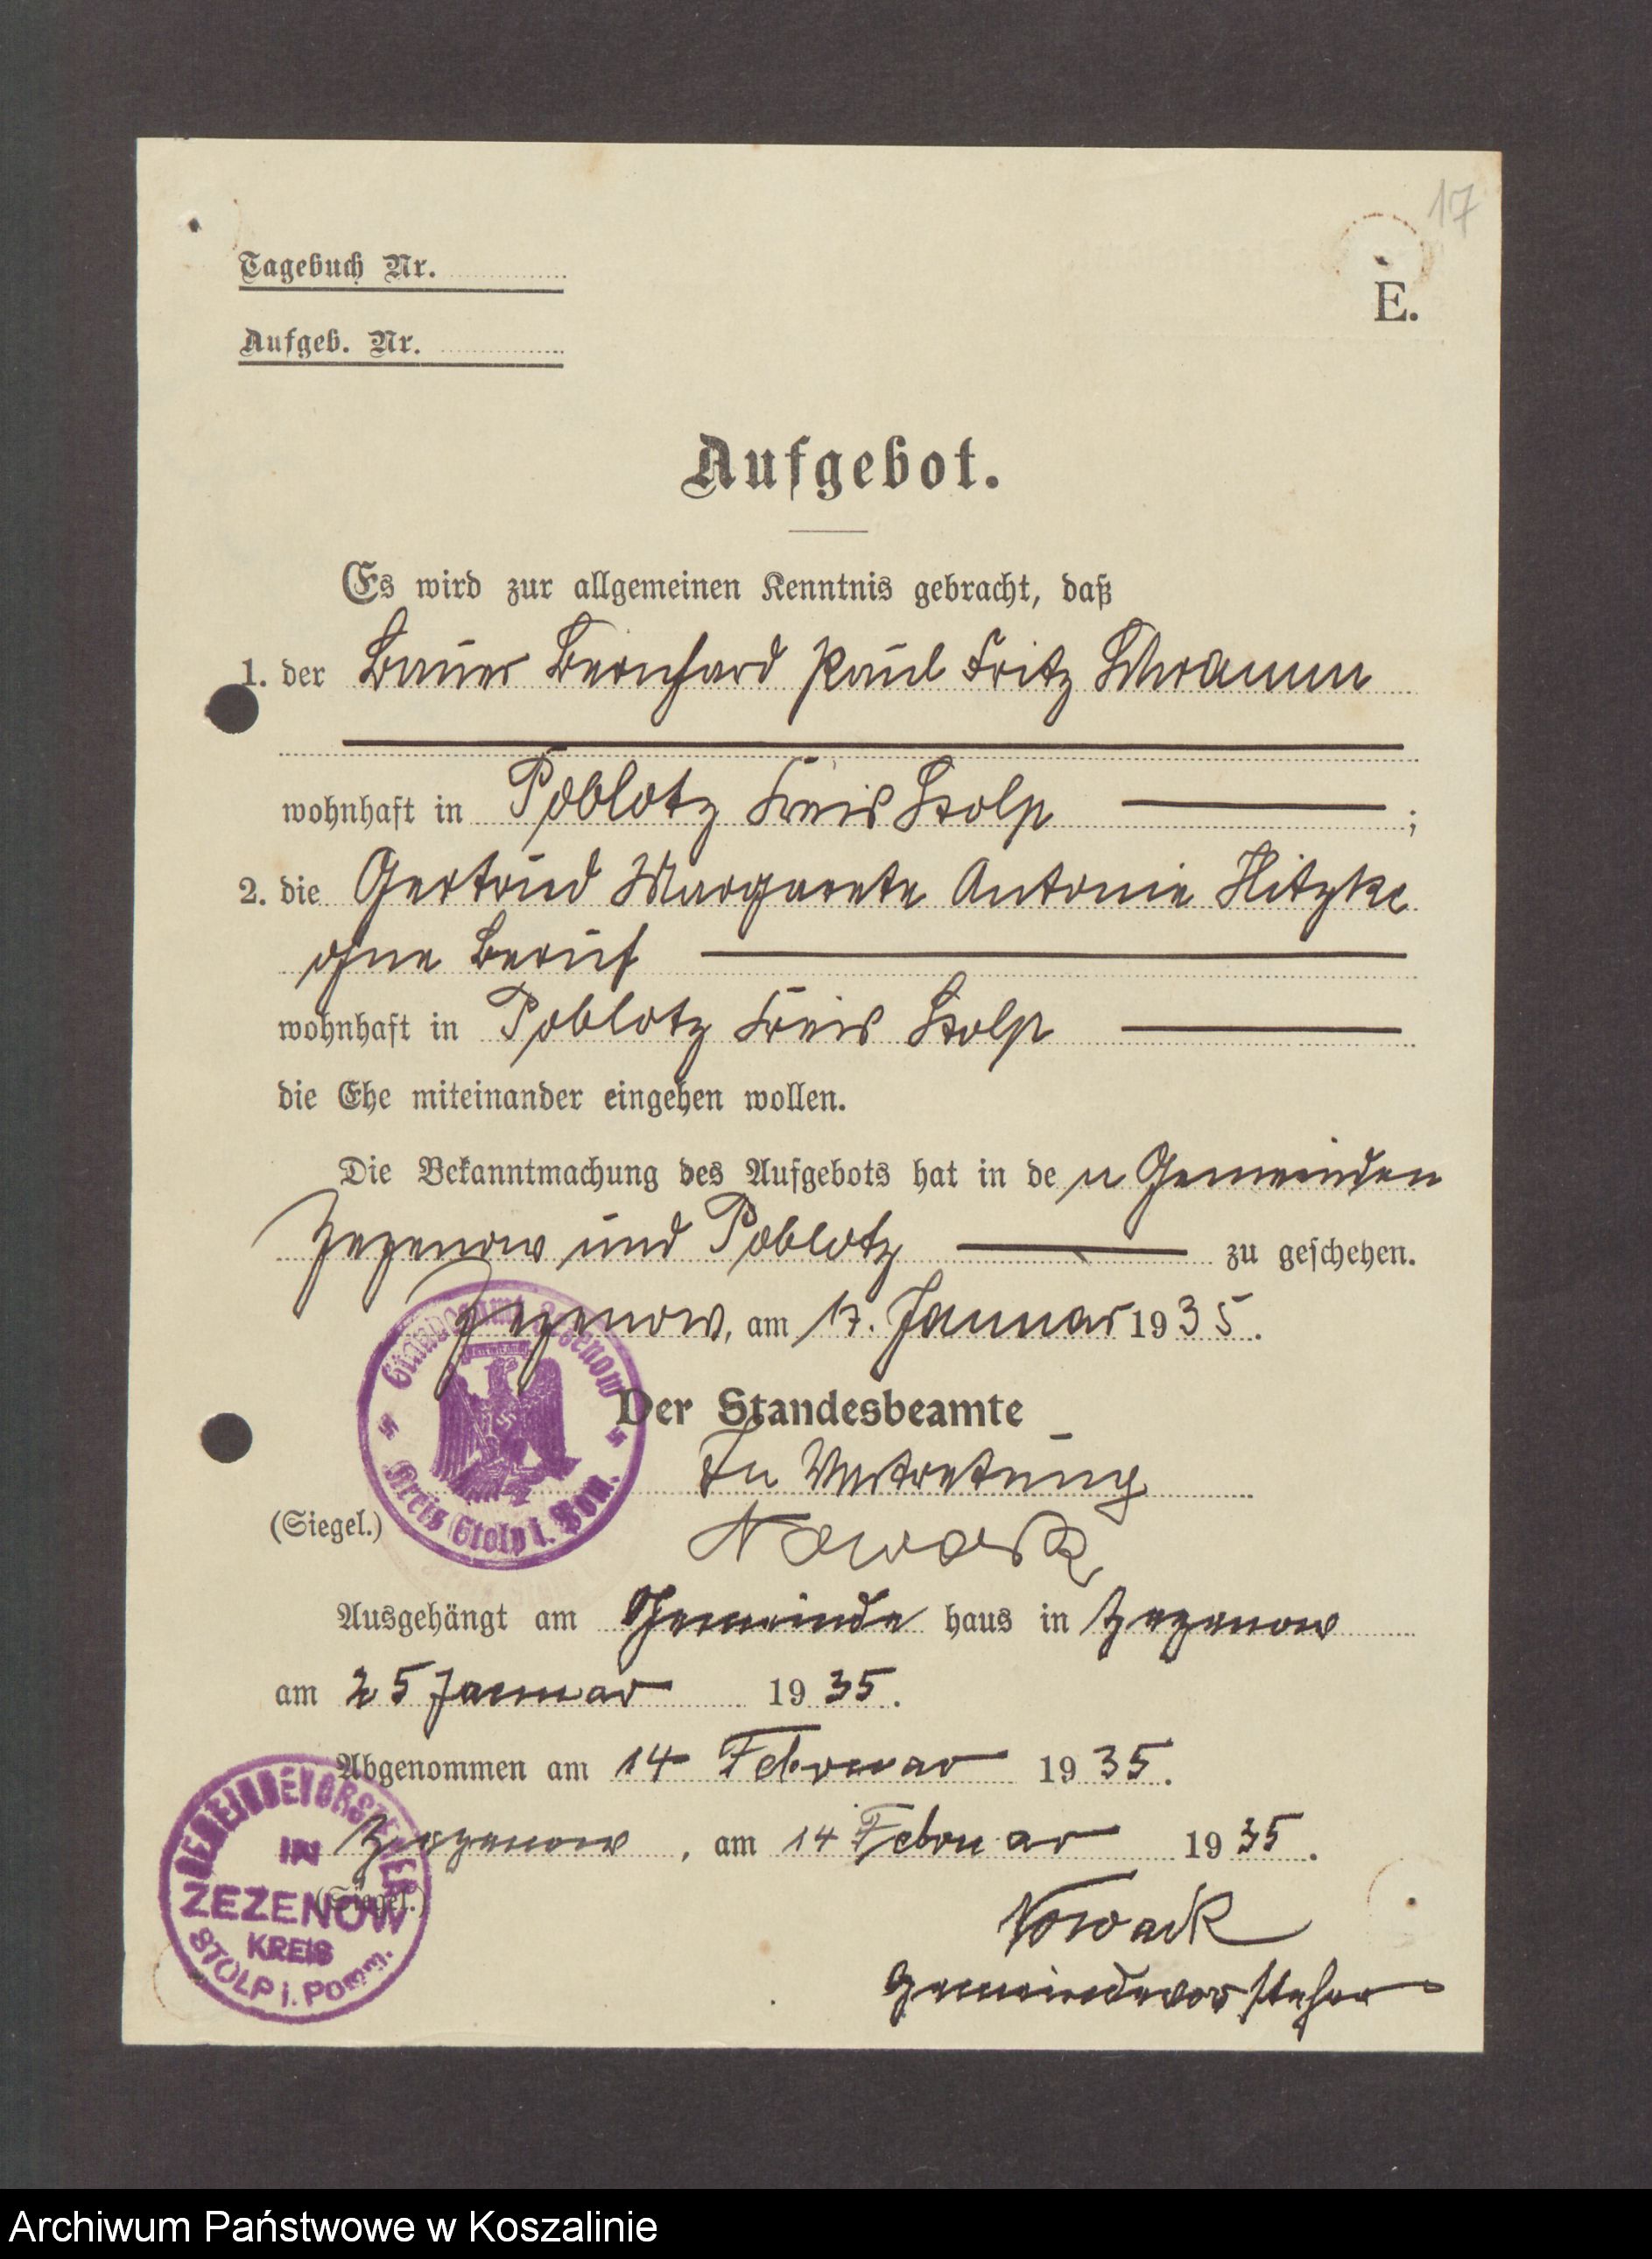 17
Tagebuch Nr.
E.
Aufgeb. Nr.
Aufgebot.
Es wird zur allgemeinen Kenntnis gebracht, daß
1. der Bauer Bernhard Paul Fritz Schramm
wohnhaft in Poblotz Kreis Stolp ;
2. die Gertrud Margarete Antonie Hitzke
ohne Beruf
wohnhaft in Poblotz Kreis Stolp
die Ehe miteinander eingehen wollen.
Die Bekanntmachung des Aufgebots hat in de n Gemeinden
Zezenow und Poblotz zu geschehen.
Zezenow, am 17. Januar 1935.
Standesamt Zezenow
Kreis Stolp i. Pom.
Der Standesbeamte
In Vertretung
(Siegel.)
Nowack
Ausgehängt am Gemeinde haus in Zezenow
am 25 Januar 1935.
Abgenommen am 14 Februar 1935.
Zezenow, am 14 Februar 1935.
GEMEINDEVORSTEHER
IN
ZEZENOW
KREIS
STOLP i. Pomm.
(Siegel.)
Nowack
Gemeindevorsteher
Archiwum Państwowe w Koszalinie